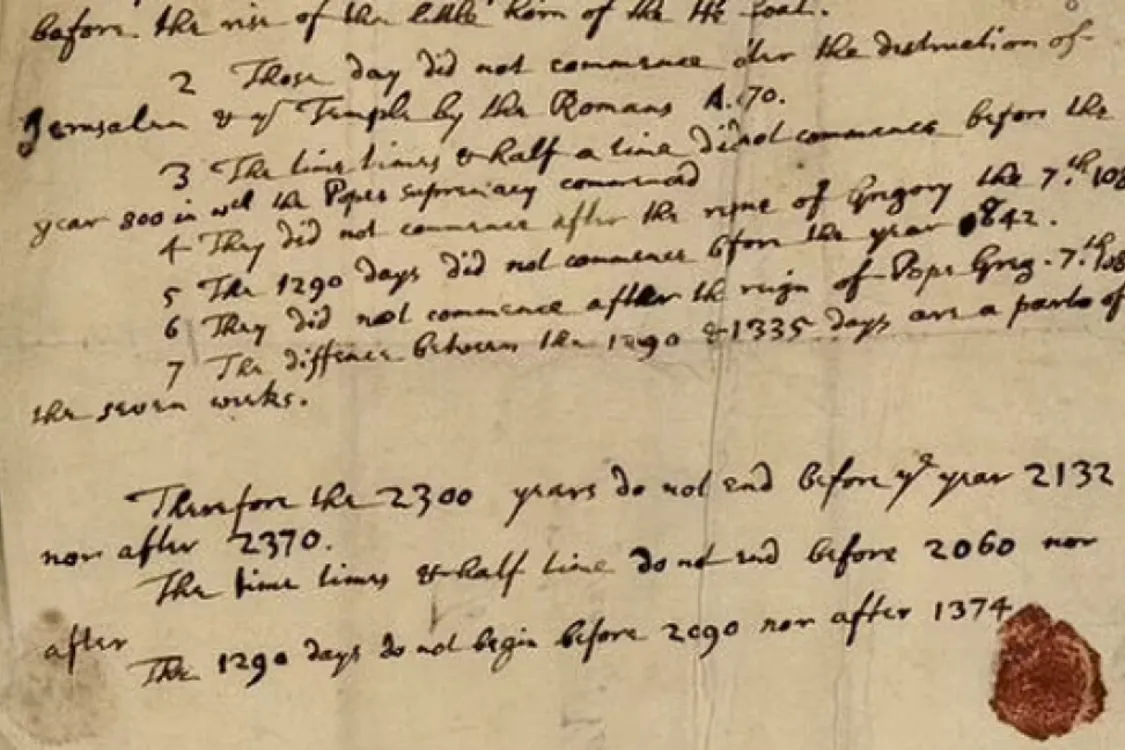 before the rise of the little horn of the He Goat.
2 Those day did not commence after the destruction of
Jerusalem & ye Temple by the Romans A. 70.
3 The time times & half a time did not commence before the
year 800 in wch the Popes supremacy commenced
4 They did not commence after the reigne of Gregory the 7th. 108
5 The 1290 days did not commence before the year 842.
6 They did not commence after the reign of Pope Greg. 7th. 108
7 The diffence between the 1290 & 1335 days are a parts of
the seven weeks.
Therefore the 2300 years do not end before ye year 2132
nor after 2370.
The time times & half time do not end before 2060 nor
after
The 1290 days do not begin before 2090 nor after 1374